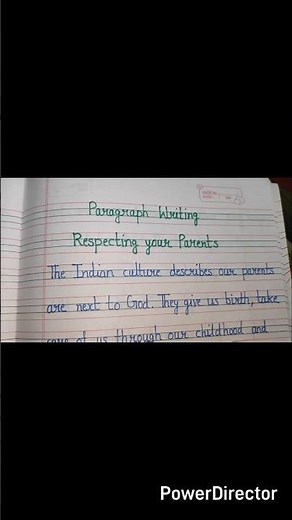 Paragraph Writing
Respecting your Parents
The Indian culture describes our parents
are next to God. They give us birth, take
care of us through our childhood and
PowerDirector